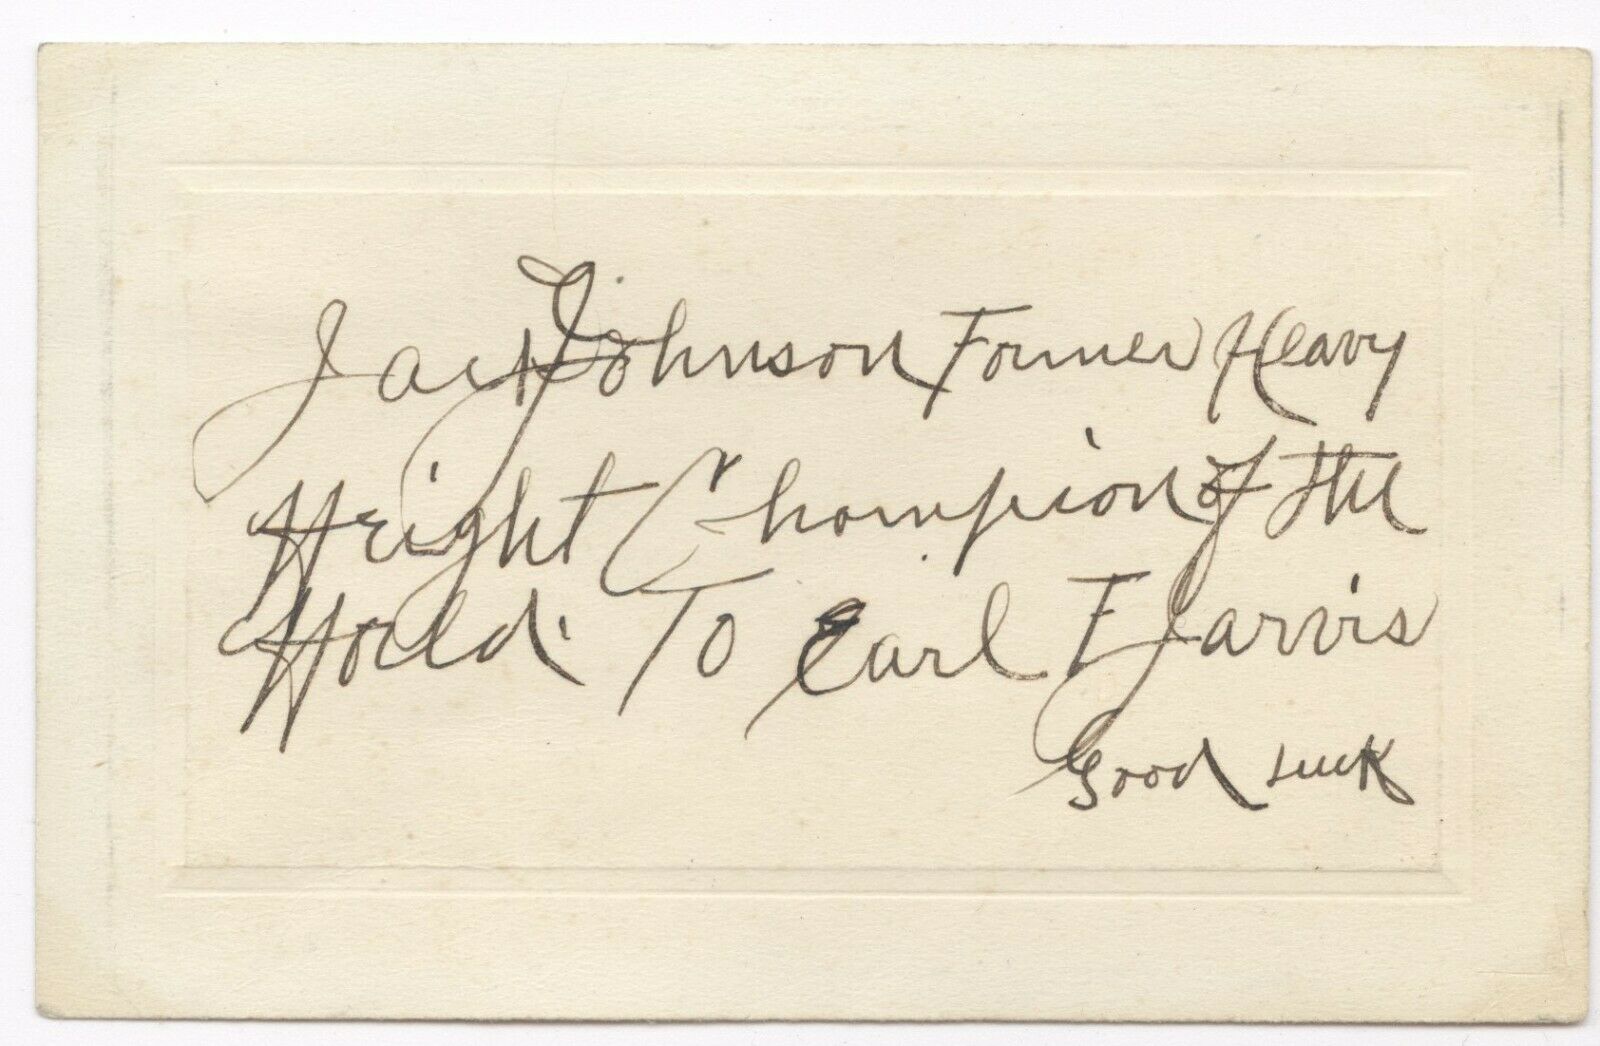 Jack Johnson Former Heavy
Weight Champion of the
World. To Earl F Jarvis
Good Luck